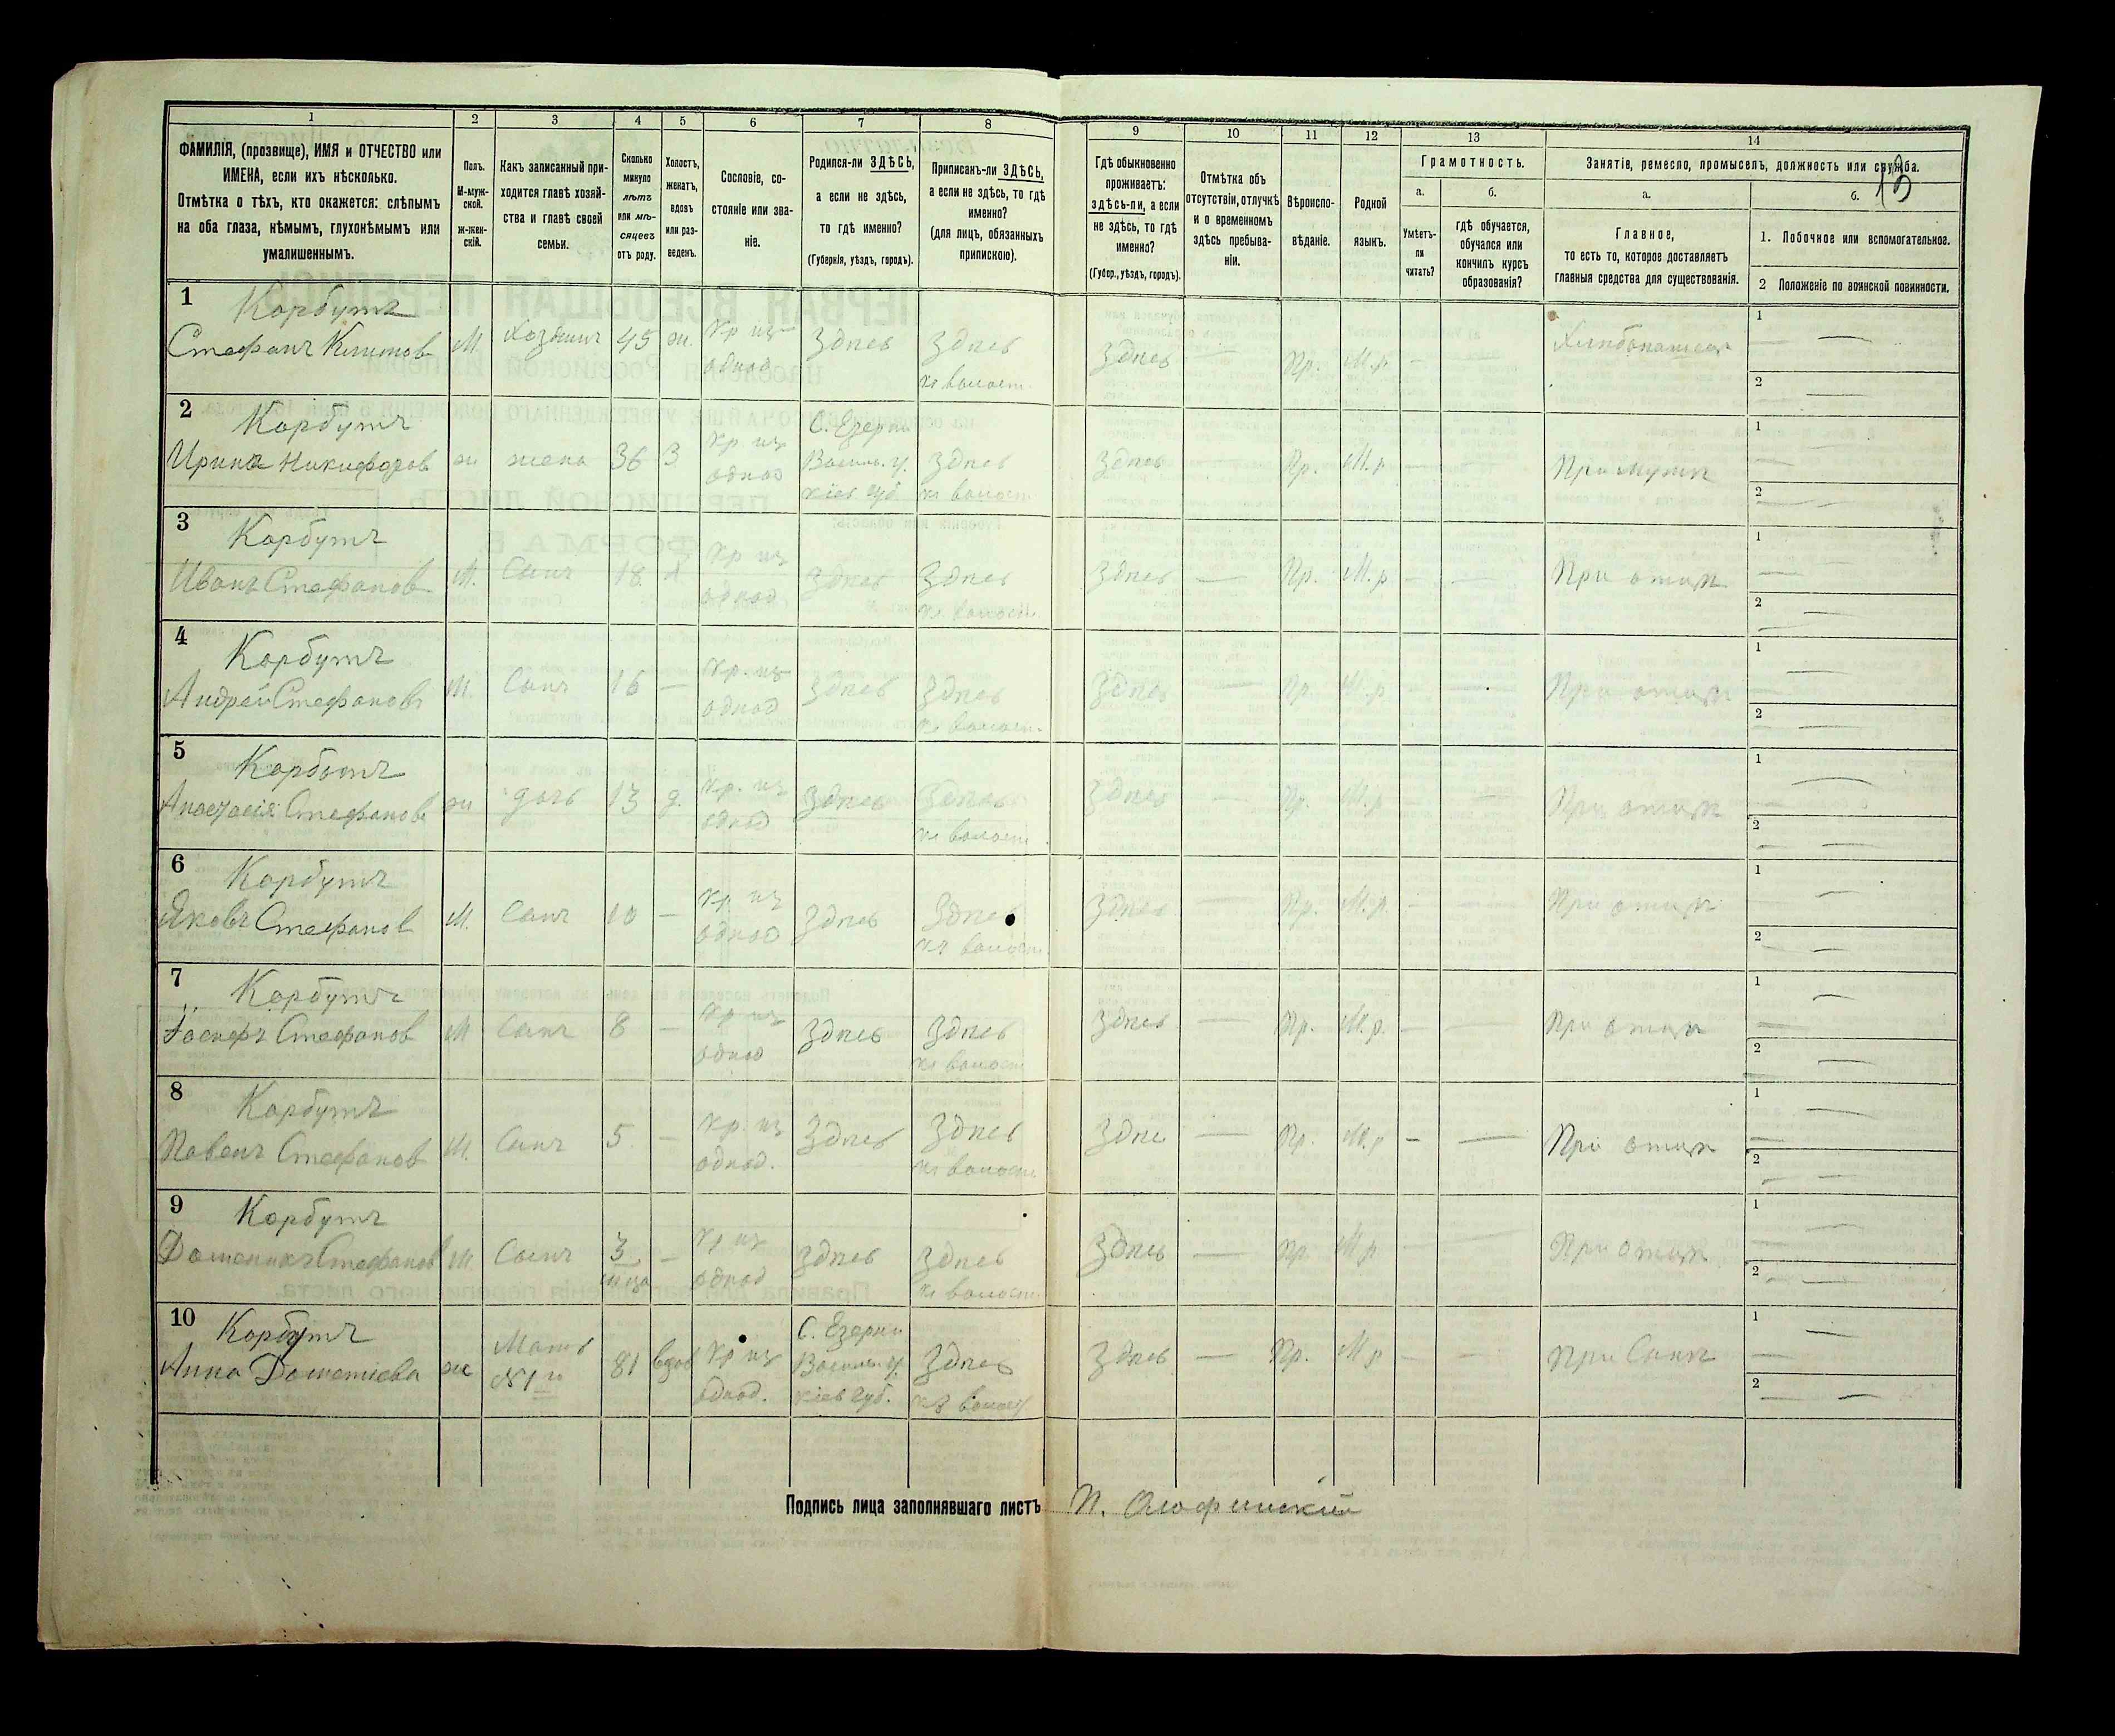 1 2 3 4 5 6 7 8 9 10 11 12 13 14
ФАМИЛІЯ, (прозвище), ИМЯ и ОТЧЕСТВО или
ИМЕНА, если ихъ нѣсколько.
Отмѣтка о тѣхъ, кто окажется: слѣпымъ
на оба глаза, нѣмымъ, глухонѣмымъ или
умалишеннымъ.
Полъ.
М-муж-
ской.
ж-жен-
скій.
Какъ записанный при-
ходится главѣ хозяй-
ства и главѣ своей
семьи.
Сколько
минуло
лѣтъ
или мѣ-
сяцевъ
отъ роду.
Холостъ,
женатъ,
вдовъ
или раз-
веденъ.
Сословіе, со-
стояніе или зва-
ніе.
Родился-ли ЗДѢСЬ,
а если не здѣсь,
то гдѣ именно?
(Губернія, уѣздъ, городъ).
Приписанъ-ли ЗДѢСЬ,
а если не здѣсь, то гдѣ
именно?
(для лицъ, обязанныхъ
припискою).
Гдѣ обыкновенно
проживаетъ:
здѣсь-ли, а если
не здѣсь, то гдѣ
именно?
(Губер., уѣздъ, городъ).
Отмѣтка объ
отсутствіи, отлучкѣ
и о временномъ
здѣсь пребыва-
ніи.
Вѣроиспо-
вѣданіе.
Родной
языкъ.
Грамотность.
а.
Умѣетъ-
ли
читать?
б.
гдѣ обучается,
обучался или
кончилъ курсъ
образованія?
Занятіе, ремесло, промыселъ, должность или служба.
а.
Главное,
то есть то, которое доставляетъ
главныя средства для существованія.
б.
1. Побочное или вспомогательное.
2 Положеніе по воинской повинности.
1 Корбутъ
Стефанъ Климовъ М. Хозяинъ 45 ж. Кр изъ однод Здѣсь Здѣсь къ волост. Здѣсь — Пр. М.р — Хлѣбопашецъ
1 —
2 —
2 Корбутъ
Ирина Никифоров ж жена 36 З Кр изъ однод С. Езерна Васильк. у. Кіев губ. Здѣсь къ волост Здѣсь — Пр. М.р — — При мужѣ
1 —
2 —
3 Корбутъ
Иванъ Стефановъ М. Сынъ 18 Х Кр изъ однод Здѣсь Здѣсь къ волост. Здѣсь — Пр. М.р — — При отцѣ
1 —
2 —
4 Корбутъ
Андрей Стефановъ М. Сынъ 16 — Кр. изъ однод Здѣсь Здѣсь къ волост. Здѣсь — Пр. М.р — — При отцѣ
1 —
2 —
5 Корбутъ
Анастасія Стефанов ж дочь 13 д. Кр. изъ однод Здѣсь Здѣсь къ волост Здѣсь — Пр. М.р — — При отцѣ
1 —
2 —
6 Корбутъ
Яковъ Стефанов М. Сынъ 10 — Кр изъ однод Здѣсь Здѣсь къ волост Здѣсь — Пр. М.р. — — При отцѣ
1 —
2 —
7 Корбутъ
Стефанов М Сынъ 8 — Кр изъ однод Здѣсь Здѣсь къ волост Здѣсь — Пр. М.р. — — При отцѣ
1 —
2 —
8 Корбутъ
Павелъ Стефанов М. Сынъ 5 — Кр. изъ однод. Здѣсь Здѣсь къ волост Здѣс — Пр. М.р — — При отцѣ
1 —
2 —
9 Корбутъ
Стефанов М Сынъ 3 — Кр изъ однод Здѣсь Здѣсь къ волост. Здѣсь — Пр. М.р — — При отцѣ
1 —
2 —
10 Корбутъ
Анна ж Мать №1го 81 вдов Кр изъ однод. С. Езерна Васильк. у. Кіев губ. Здѣсь къ волост Здѣсь — Пр. М р — — При Сынѣ
1 —
2 —
Подпись лица заполнявшаго листъ П.